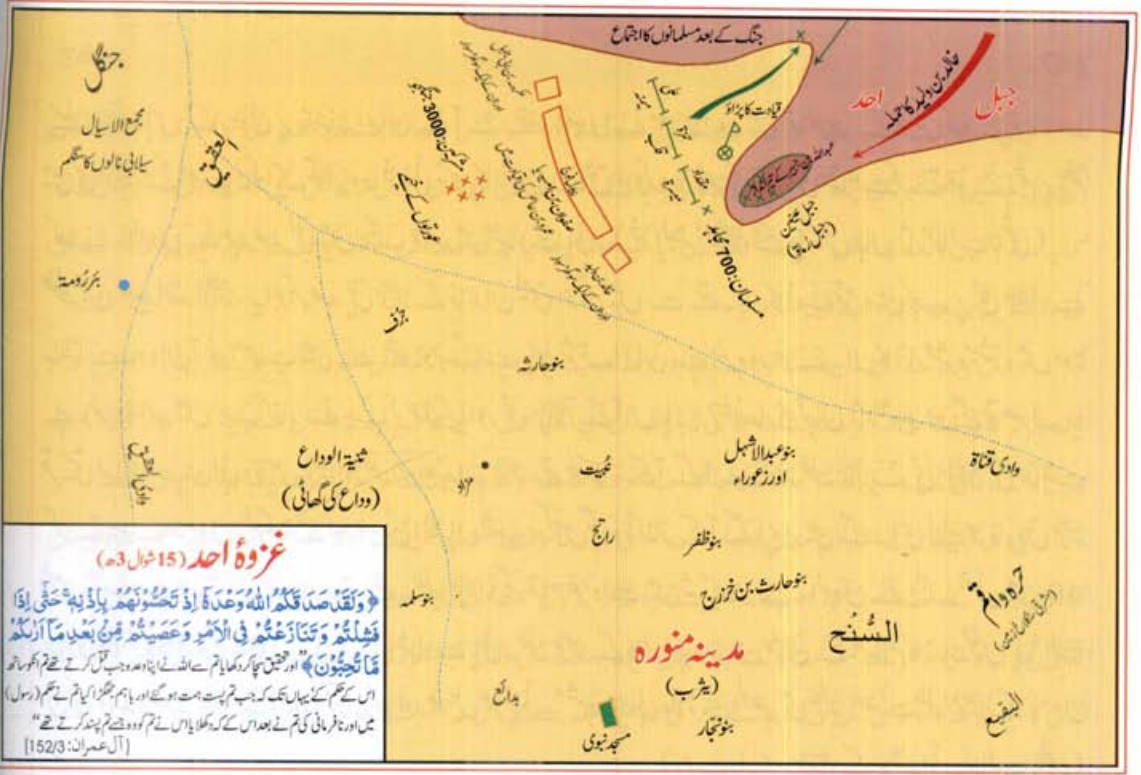 جنگ کے بعد مسلمانوں کا اجتماع
جبل
احد
خالد بن ولید کا حملہ
قیادت کا پڑاؤ
میمنہ
قلب
میسرہ
مسلمان: 700 مجاہد
جبل عینین
(جبل رماۃ)
مشرکین: 3000 جنگجو
عورتوں کے خیمے
جنگل
مجمع الاسیال
سیلابی نالوں کا سنگم
العقیق
بئر رُومۃ
جرف
بنو حارثہ
وادی العقیق
ثنیۃ الوداع
(وداع کی گھاٹی)
بنو عبدالاشہل
اور زعوراء
وادی قناۃ
راتج
بنو ظفر
بنو حارث بن خزرج
السُّنْح
حرہ واقم
بنو سلمہ
مدینہ منورہ
(یثرب)
بنو نجار
بدائع
مسجد نبوی
البقیع
غزوۂ احد (15 شوال 3ھ)
﴿وَلَقَدْ صَدَقَكُمُ اللهُ وَعْدَهٗٓ اِذْ تَحُسُّوْنَهُمْ بِاِذْنِهٖ ۚ حَتّٰٓى اِذَا
فَشِلْتُمْ وَتَنَازَعْتُمْ فِي الْاَمْرِ وَعَصَيْتُمْ مِّنْۢ بَعْدِ مَآ اَرٰىكُمْ
مَّا تُحِبُّوْنَ﴾ "اور تحقیق سچا کر دکھایا تم سے اللہ نے اپنا وعدہ جب قتل کرتے تھے تم انکو ساتھ
اس کے حکم کے یہاں تک کہ جب تم پست ہمت ہو گئے اور باہم جھگڑا کیا تم نے حکم (رسول)
میں اور نافرمانی کی تم نے بعد اس کے کہ دکھلایا اس نے تم کو وہ جسے تم پسند کرتے تھے"
[آل عمران: 152/3]